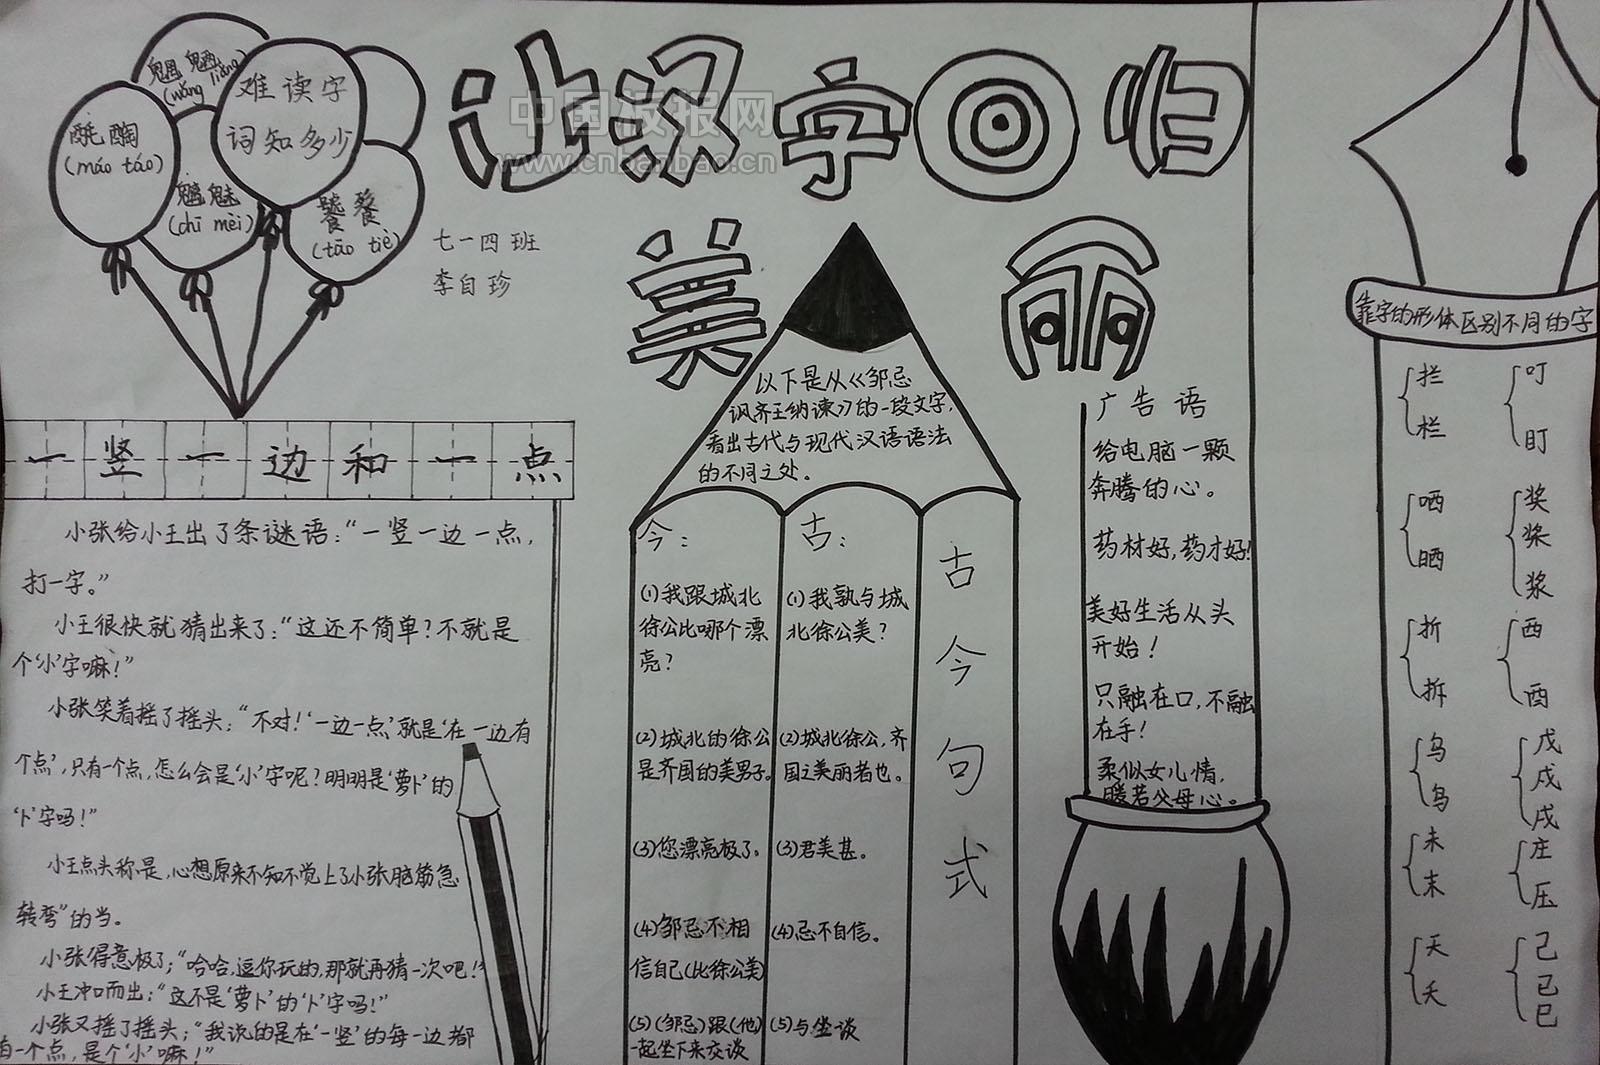 让汉字回归
美丽
中国板报网
www.cnbanbao.cn
魍魉
(wǎng liǎng)
难读字
词知多少
酕醄
(máo táo)
魑魅
(chī mèi)
饕餮
(tāo tiè)
七一四班
李自珍
一竖一边和一点
小张给小王出了条谜语:“一竖一边一点,
打一字。”
小王很快就猜出来了:“这还不简单?不就是
个‘小’字嘛!”
小张笑着摇了摇头:“不对!‘一边一点’就是‘在一边有
个点’,只有一个点,怎么会是‘小’字呢?明明是‘萝卜’的
‘卜’字吗!”
小王点头称是,心想原来不知不觉上了小张脑筋急
转弯”的当。
小张得意极了:“哈哈,逗你玩的,那就再猜一次吧!”
小王冲口而出:“这不是‘萝卜’的‘卜’字吗!”
小张又摇了摇头:“我说的是在‘一竖’的每一边都
有一个点,是个‘小’嘛!”
以下是从《邹忌
讽齐王纳谏》的一段文字,
看出古代与现代汉语语法
的不同之处。
今:
(1)我跟城北
徐公比哪个漂
亮?
(2)城北的徐公
是齐国的美男子。
(3)您漂亮极了。
(4)邹忌不相
信自己(比徐公美)
(5)(邹忌)跟(他)
一起坐下来交谈
古:
(1)我孰与城
北徐公美?
(2)城北徐公,齐
国之美丽者也。
(3)君美甚。
(4)忌不自信。
(5)与坐谈
古今句式
广告语
给电脑一颗
奔腾的心。
药材好,药才好!
美好生活从头
开始!
只融在口,不融
在手!
柔似女儿情,
暖若父母心。
靠字的形体区别不同的字
拦
栏
叮
盯
哂
晒
奖
桨
浆
折
拆
西
酉
乌
鸟
戊
戌
戍
未
末
庄
压
天
夭
己
已
巳